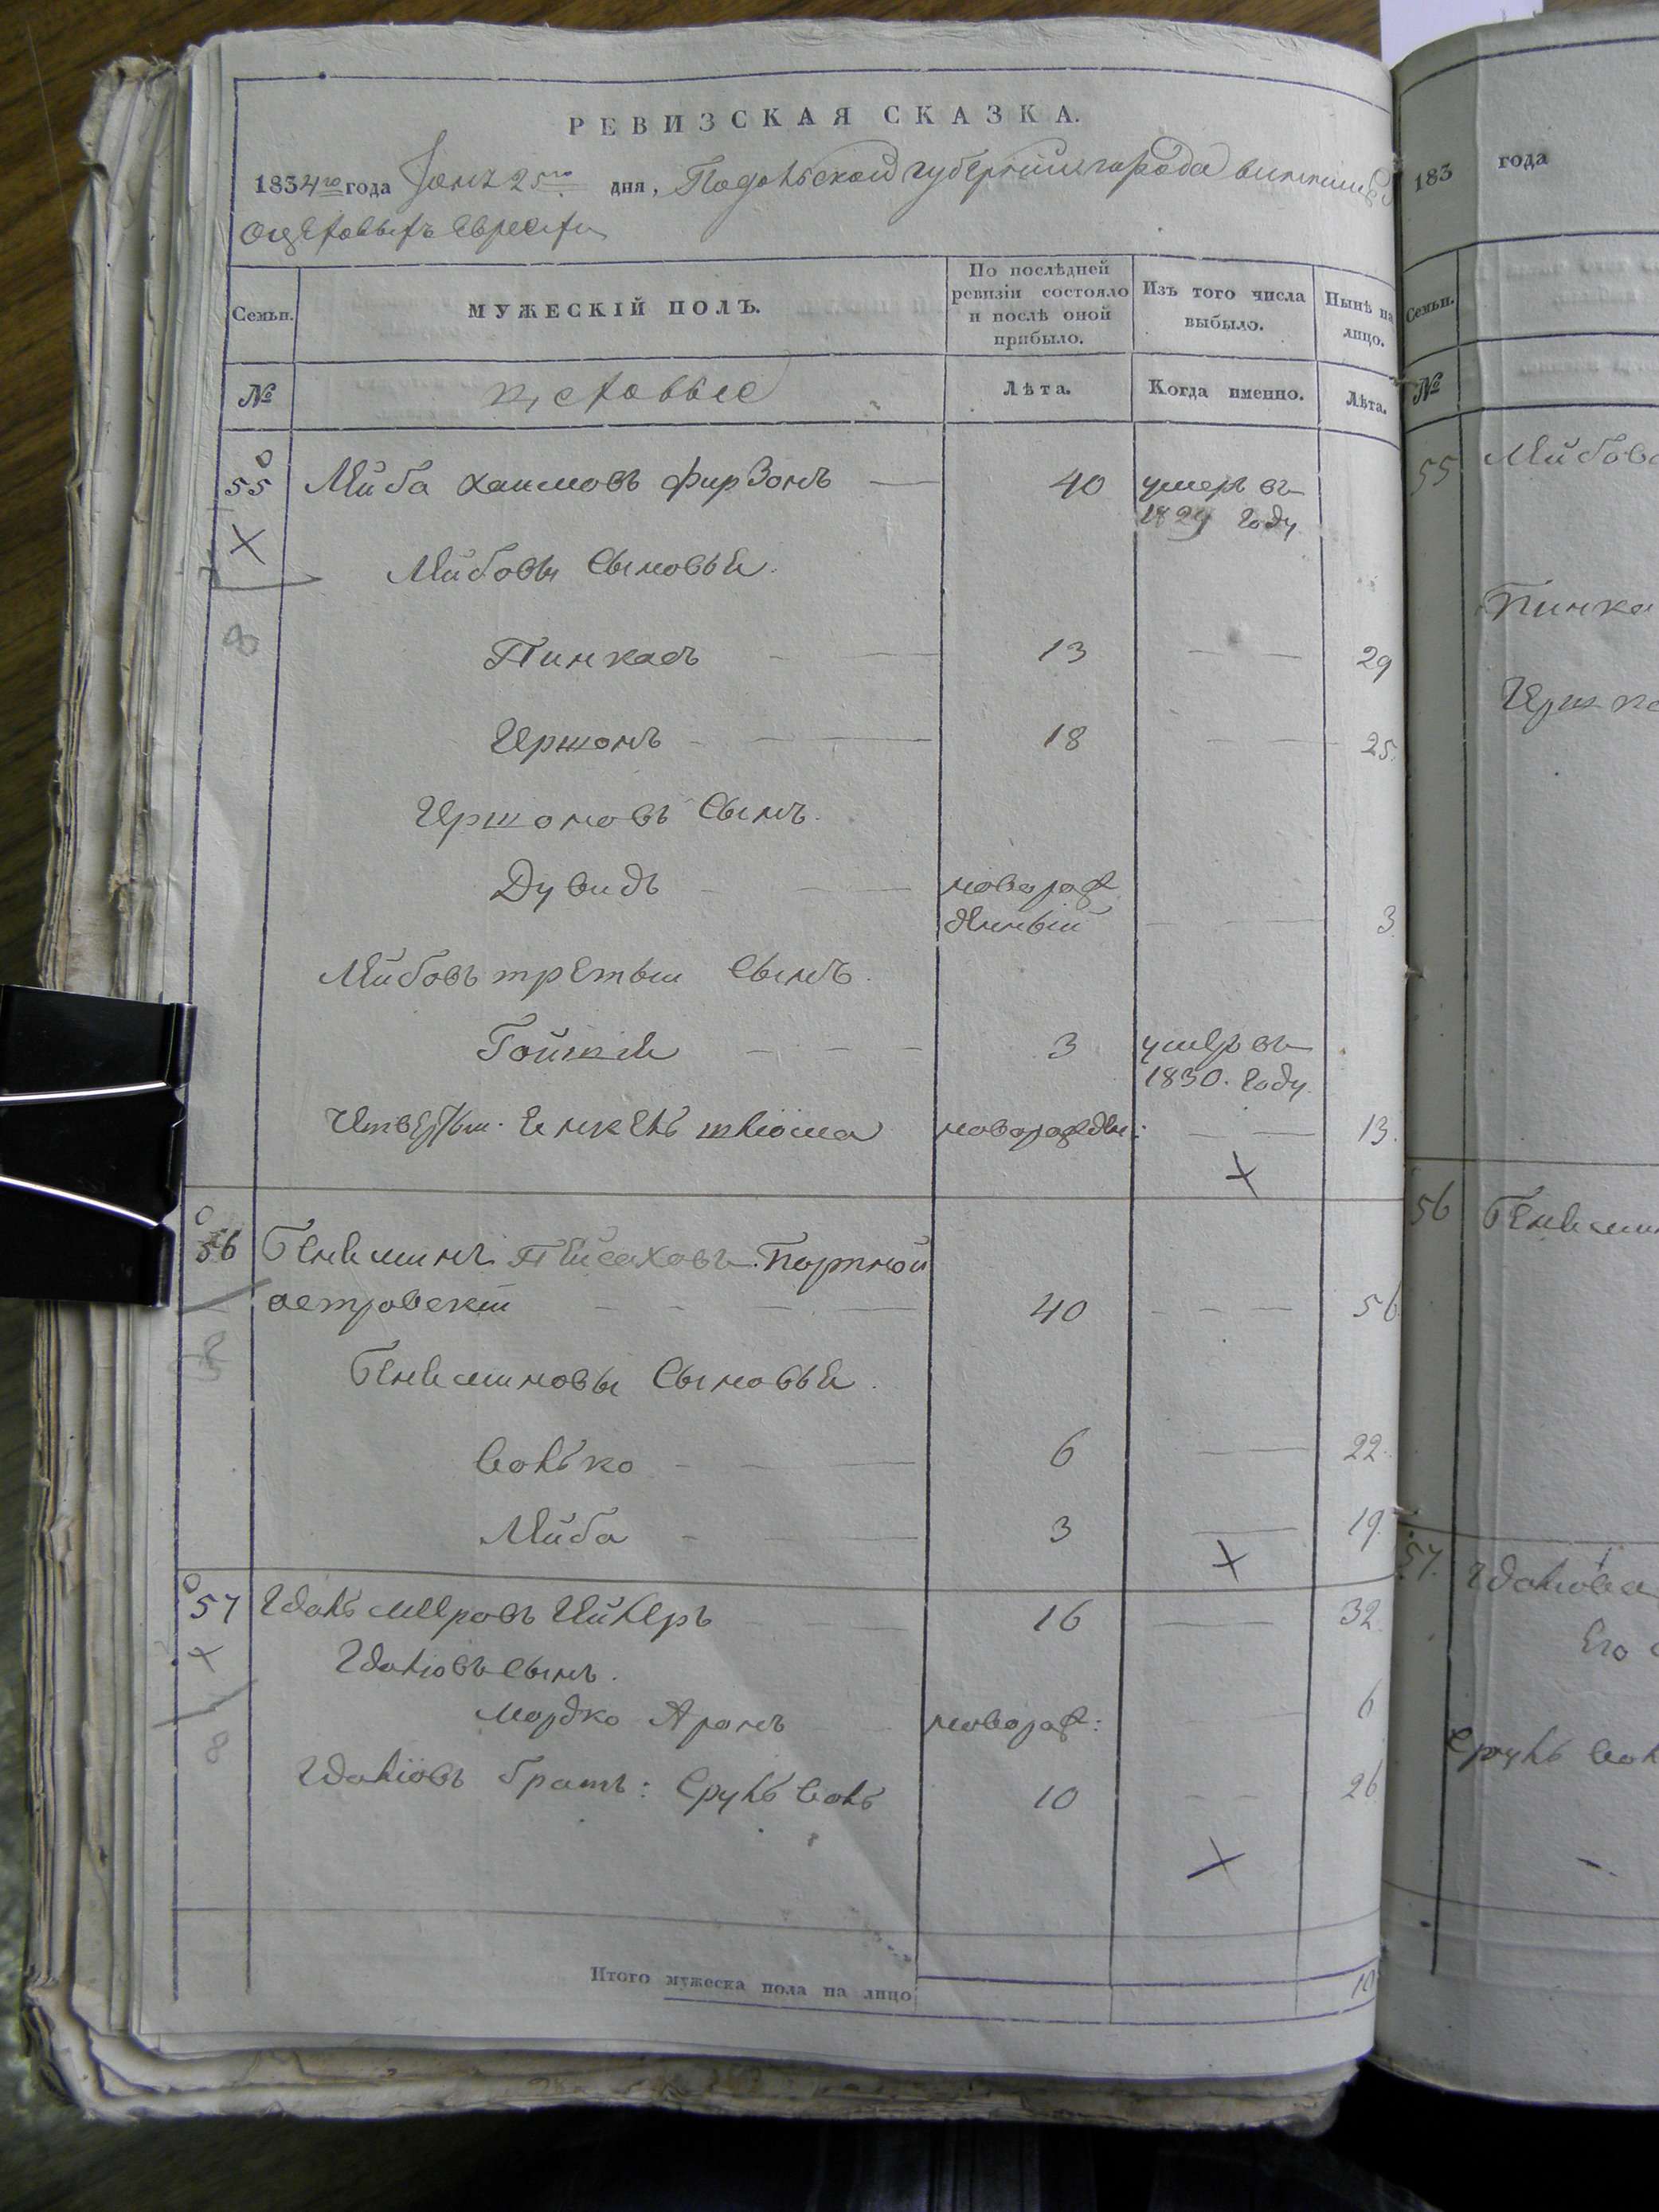 РЕВИЗСКАЯ СКАЗКА.
1834го года 25го дня, Подольской губернии города винницы
о цеховыхъ евреяхъ
Семьи.
МУЖЕСКІЙ ПОЛЪ.
По послѣдней ревизіи состояло и послѣ оной прибыло.
Изъ того числа выбыло.
Нынѣ на лицо.
№
цеховые
Лѣта.
Когда именно.
Лѣта.
55 Лейба хаимовъ фирзонъ 40 умеръ въ
1829 году
Лейбовы сыновья.
Пинкасъ 13 29
Гершонъ 18 25
Гершоновъ сынъ.
Дувидъ новорож
денный 3
Лейбовъ третьи сынъ.
3 умеръ въ
1830. году.
Четвертыи. Енкель шлиома новорожден: 13.
56 Бениаминъ Пейсаховъ. Портной
островскій 40 56
Бениаминовы сыновья.
Иолько 6 22.
Лейба 3 19.
57 Идаль мееровъ 16 32
Идалювъ сынъ.
мордко Аронъ новорож: 6
Идаліовъ братъ: Сруль 10 26
Итого мужеска пола на лицо 10
183 года
Семьи.
№
55 Лейбова
56
57. Идаліова
Его
Сруль